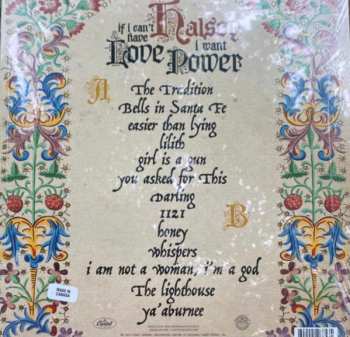 if i can't have Halsey i want
Love Power
A
The Tradition
Bells in Santa Fe
easier than lying
lilith
girl is a gun
you asked for This
Darling
1121
B
honey
whispers
i am not a woman, i'm a god
The lighthouse
ya'aburnee
MADE IN CANADA
Capitol